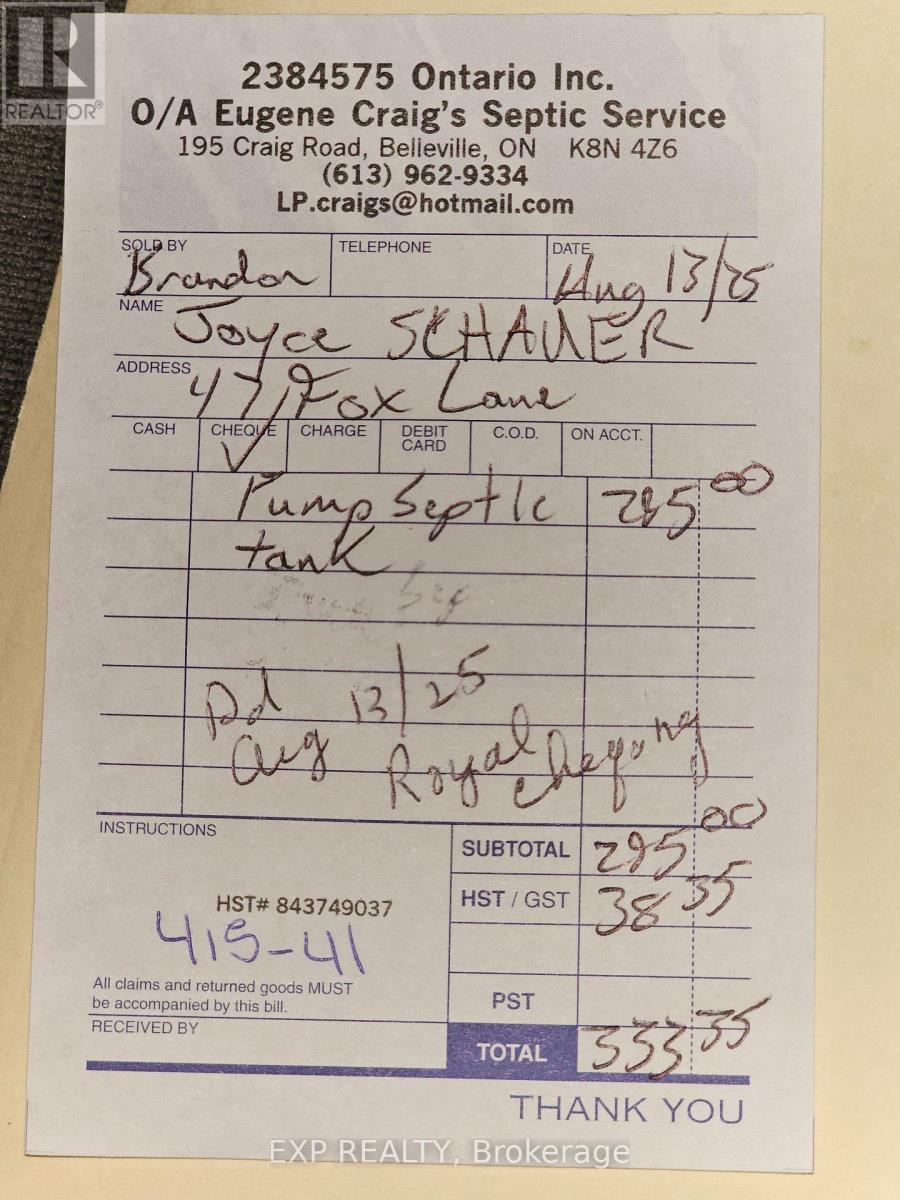 REALTOR®
2384575 Ontario Inc.
O/A Eugene Craig's Septic Service
195 Craig Road, Belleville, ON K8N 4Z6
(613) 962-9334
LP.craigs@hotmail.com
SOLD BY TELEPHONE DATE
Brandon Aug 13/25
NAME
Joyce SCHAUER
ADDRESS
47 Fox Lane
CASH CHEQUE CHARGE DEBIT CARD C.O.D. ON ACCT.
✓
Pump Septic 295 00
tank
Pd 13/25
Aug Royal chequing
INSTRUCTIONS
SUBTOTAL 295 00
HST# 843749037
HST / GST 38 35
415-41
All claims and returned goods MUST
be accompanied by this bill.
PST
RECEIVED BY
TOTAL 333 35
THANK YOU
EXP REALTY, Brokerage